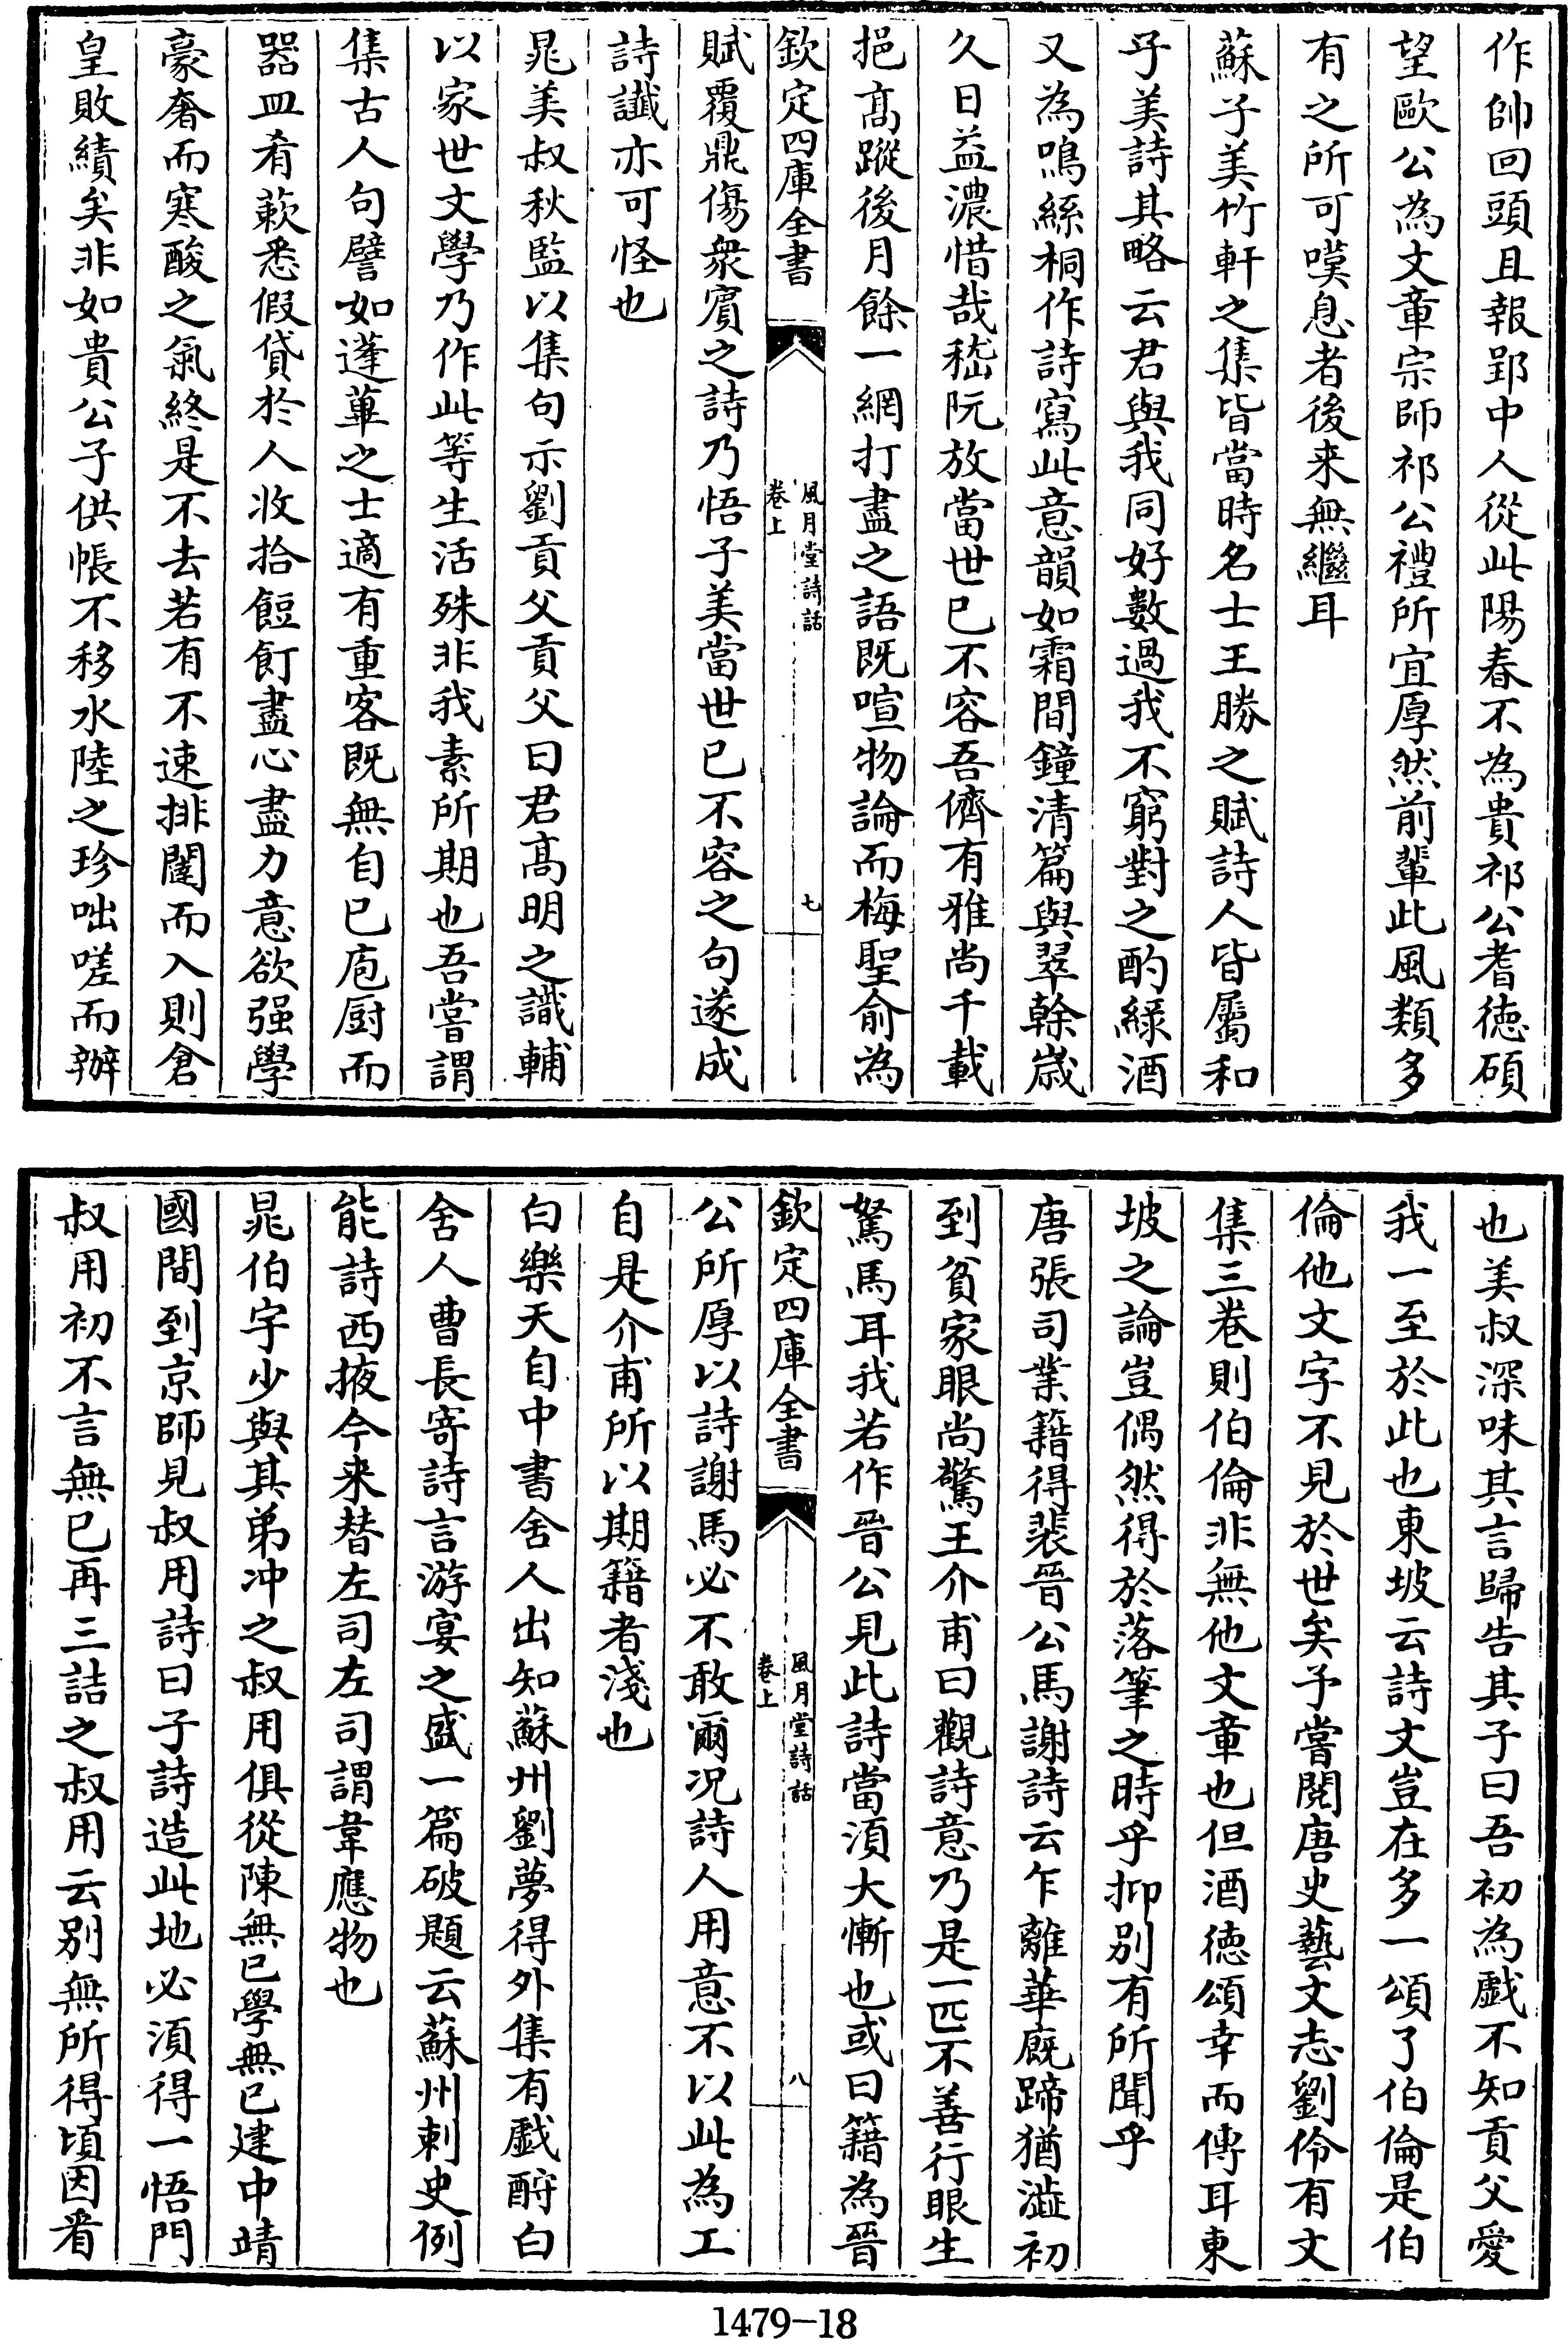 作帥回頭且報郢中人從此陽春不為貴祁公耆徳碩
望歐公為文章宗師祁公禮所宜厚然前輩此風類多
有之所可嘆息者後来無繼耳
蘇子美竹軒之集皆當時名士王勝之賦詩人皆屬和
子美詩其略云君與我同好數過我不窮對之酌緑酒
又為鳴絲桐作詩寫此意韻如霜間鐘清篇與翠榦歳
久日益濃惜哉嵇阮放當世已不容吾儕有雅尚千載
挹髙蹤後月餘一網打盡之語既喧物論而梅聖俞為
欽定四庫全書
風月堂詩話
卷上
七
賦覆鼎傷衆賓之詩乃悟子美當世已不容之句遂成
詩讖亦可怪也
晁美叔秋監以集句示劉貢父貢父曰君髙明之識輔
以家世文學乃作此等生活殊非我素所期也吾嘗謂
集古人句譬如蓬蓽之士適有重客既無自已庖厨而
器皿肴蔌悉假貸於人收拾餖飣盡心盡力意欲强學
豪奢而寒酸之氣終是不去若有不速排闥而入則倉
皇敗績矣非如貴公子供帳不移水陸之珍咄嗟而辦
也美叔深味其言歸告其子曰吾初為戯不知貢父愛
我一至於此也東坡云詩文豈在多一頌了伯倫是伯
倫他文字不見於世矣予嘗閱唐史藝文志劉伶有文
集三巻則伯倫非無他文章也但酒徳頌幸而傳耳東
坡之論豈偶然得於落筆之時乎抑别有所聞乎
唐張司業籍得裴晉公馬謝詩云乍離華廐蹄猶澁初
到貧家眼尚驚王介甫曰觀詩意乃是一匹不善行眼生
駑馬耳我若作晉公見此詩當湏大慚也或曰籍為晉
欽定四庫全書
風月堂詩話
卷上
八
公所厚以詩謝馬必不敢爾况詩人用意不以此為工
自是介甫所以期籍者淺也
白樂天自中書舍人出知蘇州劉夢得外集有戯酧白
舍人曹長寄詩言游宴之盛一篇破題云蘇州刺史例
能詩西掖今来替左司左司謂韋應物也
晁伯宇少與其弟冲之叔用俱從陳無已學無已建中靖
國間到京師見叔用詩曰子詩造此地必湏得一悟門
叔用初不言無已再三詰之叔用云别無所得頃因看
1479-18